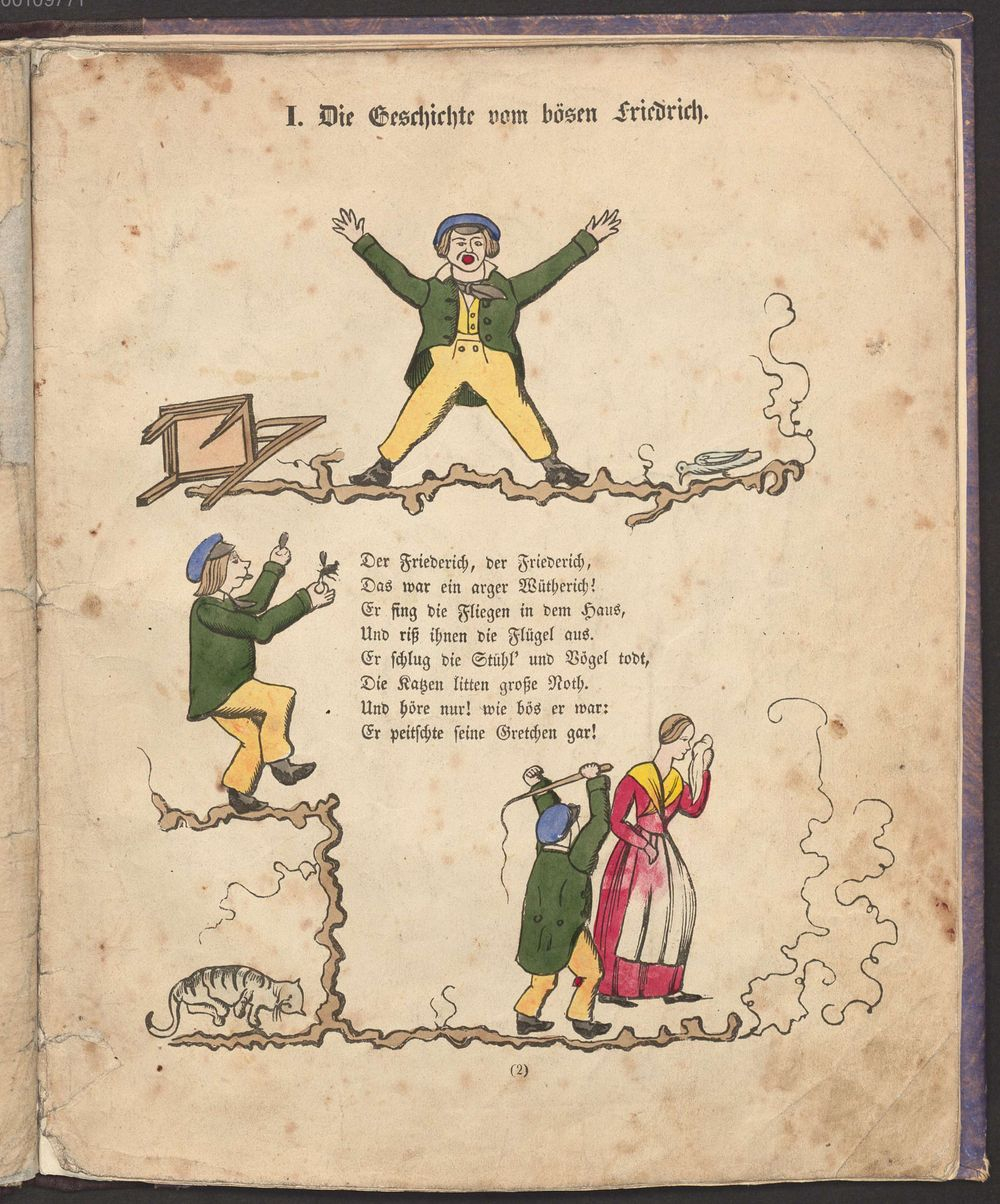 00109771
I. Die Geschichte vom bösen Friedrich.
Der Friederich, der Friederich,
Das war ein arger Wütherich!
Er fing die Fliegen in dem Haus,
Und riß ihnen die Flügel aus.
Er schlug die Stühl' und Vögel todt,
Die Katzen litten große Noth.
Und höre nur! wie bös er war:
Er peitschte seine Gretchen gar!
(2)